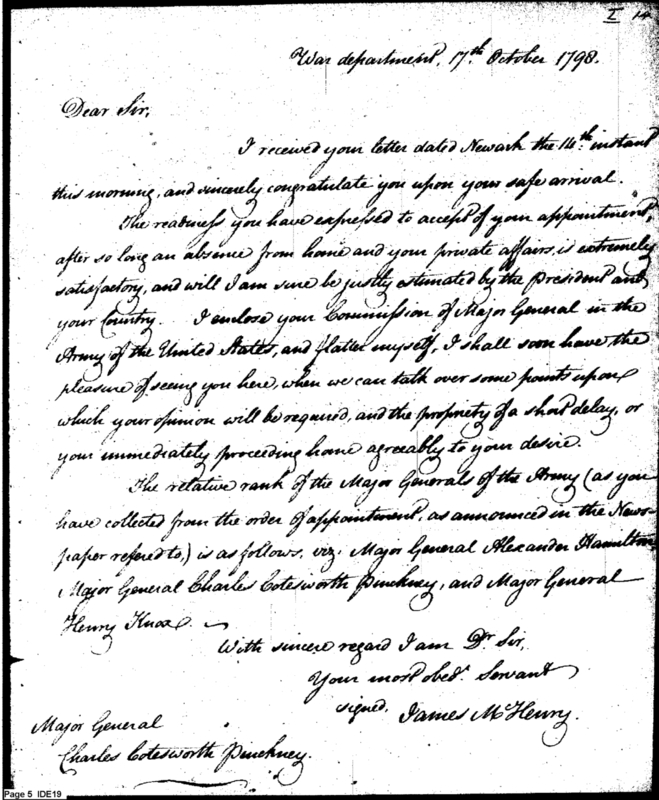 I 14
War department, 17th October 1798.
Dear Sir,
I received your letter dated Newark the 14th instant
this morning, and sincerely congratulate you upon your safe arrival.
The readiness you have expressed to accept of your appointment,
after so long an absence from home and your private affairs, is extremely
satisfactory, and will I am sure be justly estimated by the President and
your Country. I enclose your Commission of Major General in the
Army of the United States, and flatter myself, I shall soon have the
pleasure of seeing you here, when we can talk over some points upon
which your opinion will be required, and the propriety of a short delay, or
your immediately proceeding home agreeably to your desire.
The relative rank of the Major Generals of the Army (as you
have collected from the order of appointment, as announced in the News-
paper refered to,) is as follows, viz. Major General Alexander Hamilton,
Major General Charles Cotesworth Pinckney, and Major General
Henry Knox.
With sincere regard I am Dr Sir,
Your most obedt. Servant
signed, James McHenry.
Major General
Charles Cotesworth Pinckney.
Page 5 IDE19